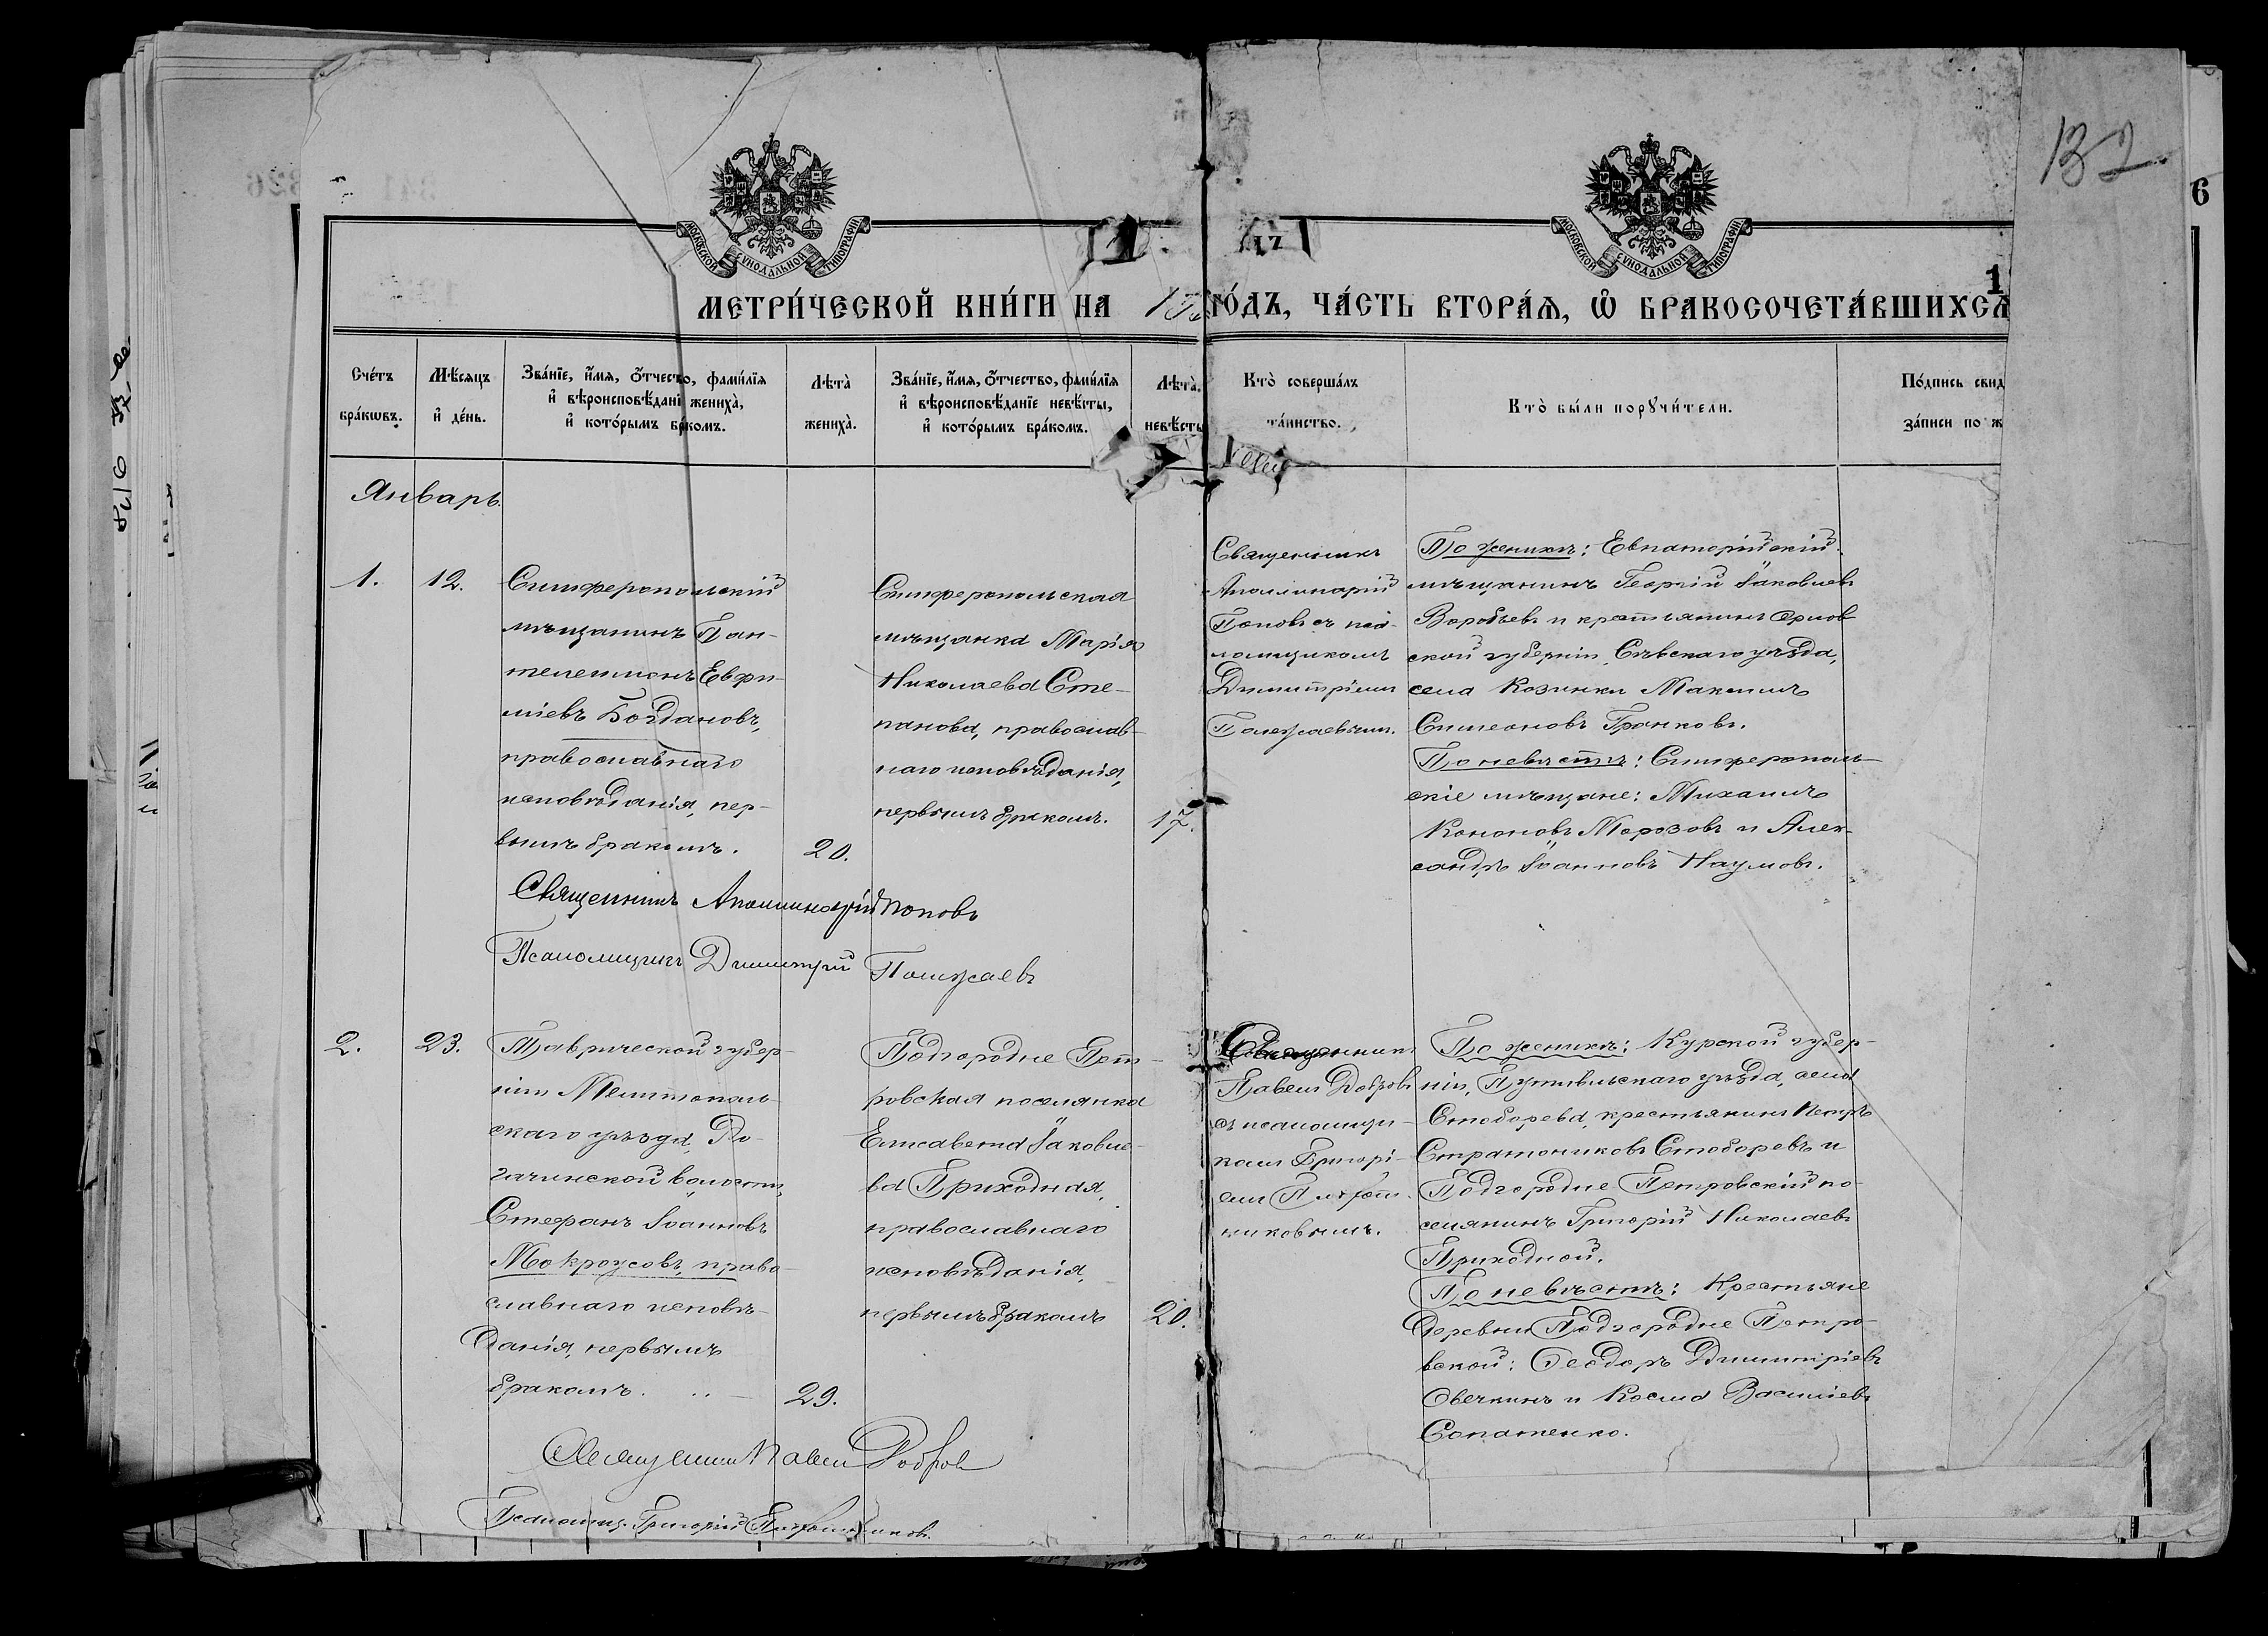 132
6
МОСКОВСКОЙ СУНОДАЛЬНОЙ ТИПОГРАФІИ
МОСКОВСКОЙ СУНОДАЛЬНОЙ ТИПОГРАФІИ
МЕТРИ́ЧЕСКОЙ КНИ́ГИ НА
ГО́ДЪ, ЧА́СТЬ ВТОРА́Ѧ, Ѡ҆ БРАКОСОЧЕТА́ВШИХСѦ
Сче́тъ бра́кѡвъ.
Мѣ́сяцъ и҆ де́нь.
Зва́нїе, и҆́мя, ѻ҆́тчество, фами́лїя
и҆ вѣроисповѣ́данї жениха̀,
и҆ кото́рымъ бр комъ.
Лѣта̀ жениха̀.
Зва́нїе, и҆́мя, ѻ҆́тчество, фами́лїя
и҆ вѣроисповѣ́данїе невѣ́сты,
и҆ кото́рымъ бра́комъ.
Лѣта̀. невѣ́сты
Кто̀ соверша́лъ та́инство.
Кто̀ бы́ли порꙋчи́тели.
По́дпись свид
за́писи по ж
Январь.
1.
12.
Симферопольскій
мѣщанинъ Пан-
телеимонъ Евфи-
міевъ Богдановъ,
православнаго
исповѣданія, пер-
вымъ бракомъ.
20.
Симферопольская
мѣщанка Марія
Николаева Сте-
панова, православ-
наго исповѣданія,
первымъ бракомъ.
17.
Священникъ
Аполлинарій
Поповъ съ пса-
ломщикомъ
Димитріемъ
Полежаевымъ.
По женихѣ: Евпаторійскій
мѣщанинъ Георгій Іаковлевъ
Воробьевъ и крестьянинъ Орлов
ской губерніи, Сѣвскаго уѣзда,
села Козинки Максимъ
Симеоновъ Гранковъ.
По невѣстѣ: Симферополь-
скіе мѣщане: Михаилъ
Кононовъ Морозовъ и Алек-
сандръ Іоанновъ Наумовъ.
Священникъ Аполлинарій Поповъ
Псаломщикъ Димитрій Полежаевъ
2.
23.
Таврической губер-
ніи Мелитополь-
скаго уѣзда, Ро-
гачинской волости,
Стефанъ Іоанновъ
Мокроусовъ, право-
славнаго исповѣ-
данія, первымъ
бракомъ.
29.
Подгородне Пет-
ровская поселянка
Елисавета Іаковле-
ва Приходная,
православнаго
исповѣданія,
первымъ бракомъ
20.
Священникъ
Павелъ Добровъ
съ псаломщи-
комъ Григорі-
емъ
никовымъ.
По женихѣ: Курской губер-
ніи, Путивльскаго уѣзда, села
Стоборева, крестьянинъ Петръ
Стратониковъ Стоборевъ и
Подгородне Петровскій по-
селянинъ Григорій Николаевъ
Приходной.
По невѣстѣ: Крестьяне
деревни Подгородне Петро-
вской: Ѳеодоръ Димитріевъ
Овечкинъ и Косма Василіевъ
Сопатенко.
Священникъ Павелъ Добров
Псаломщ. Григорій